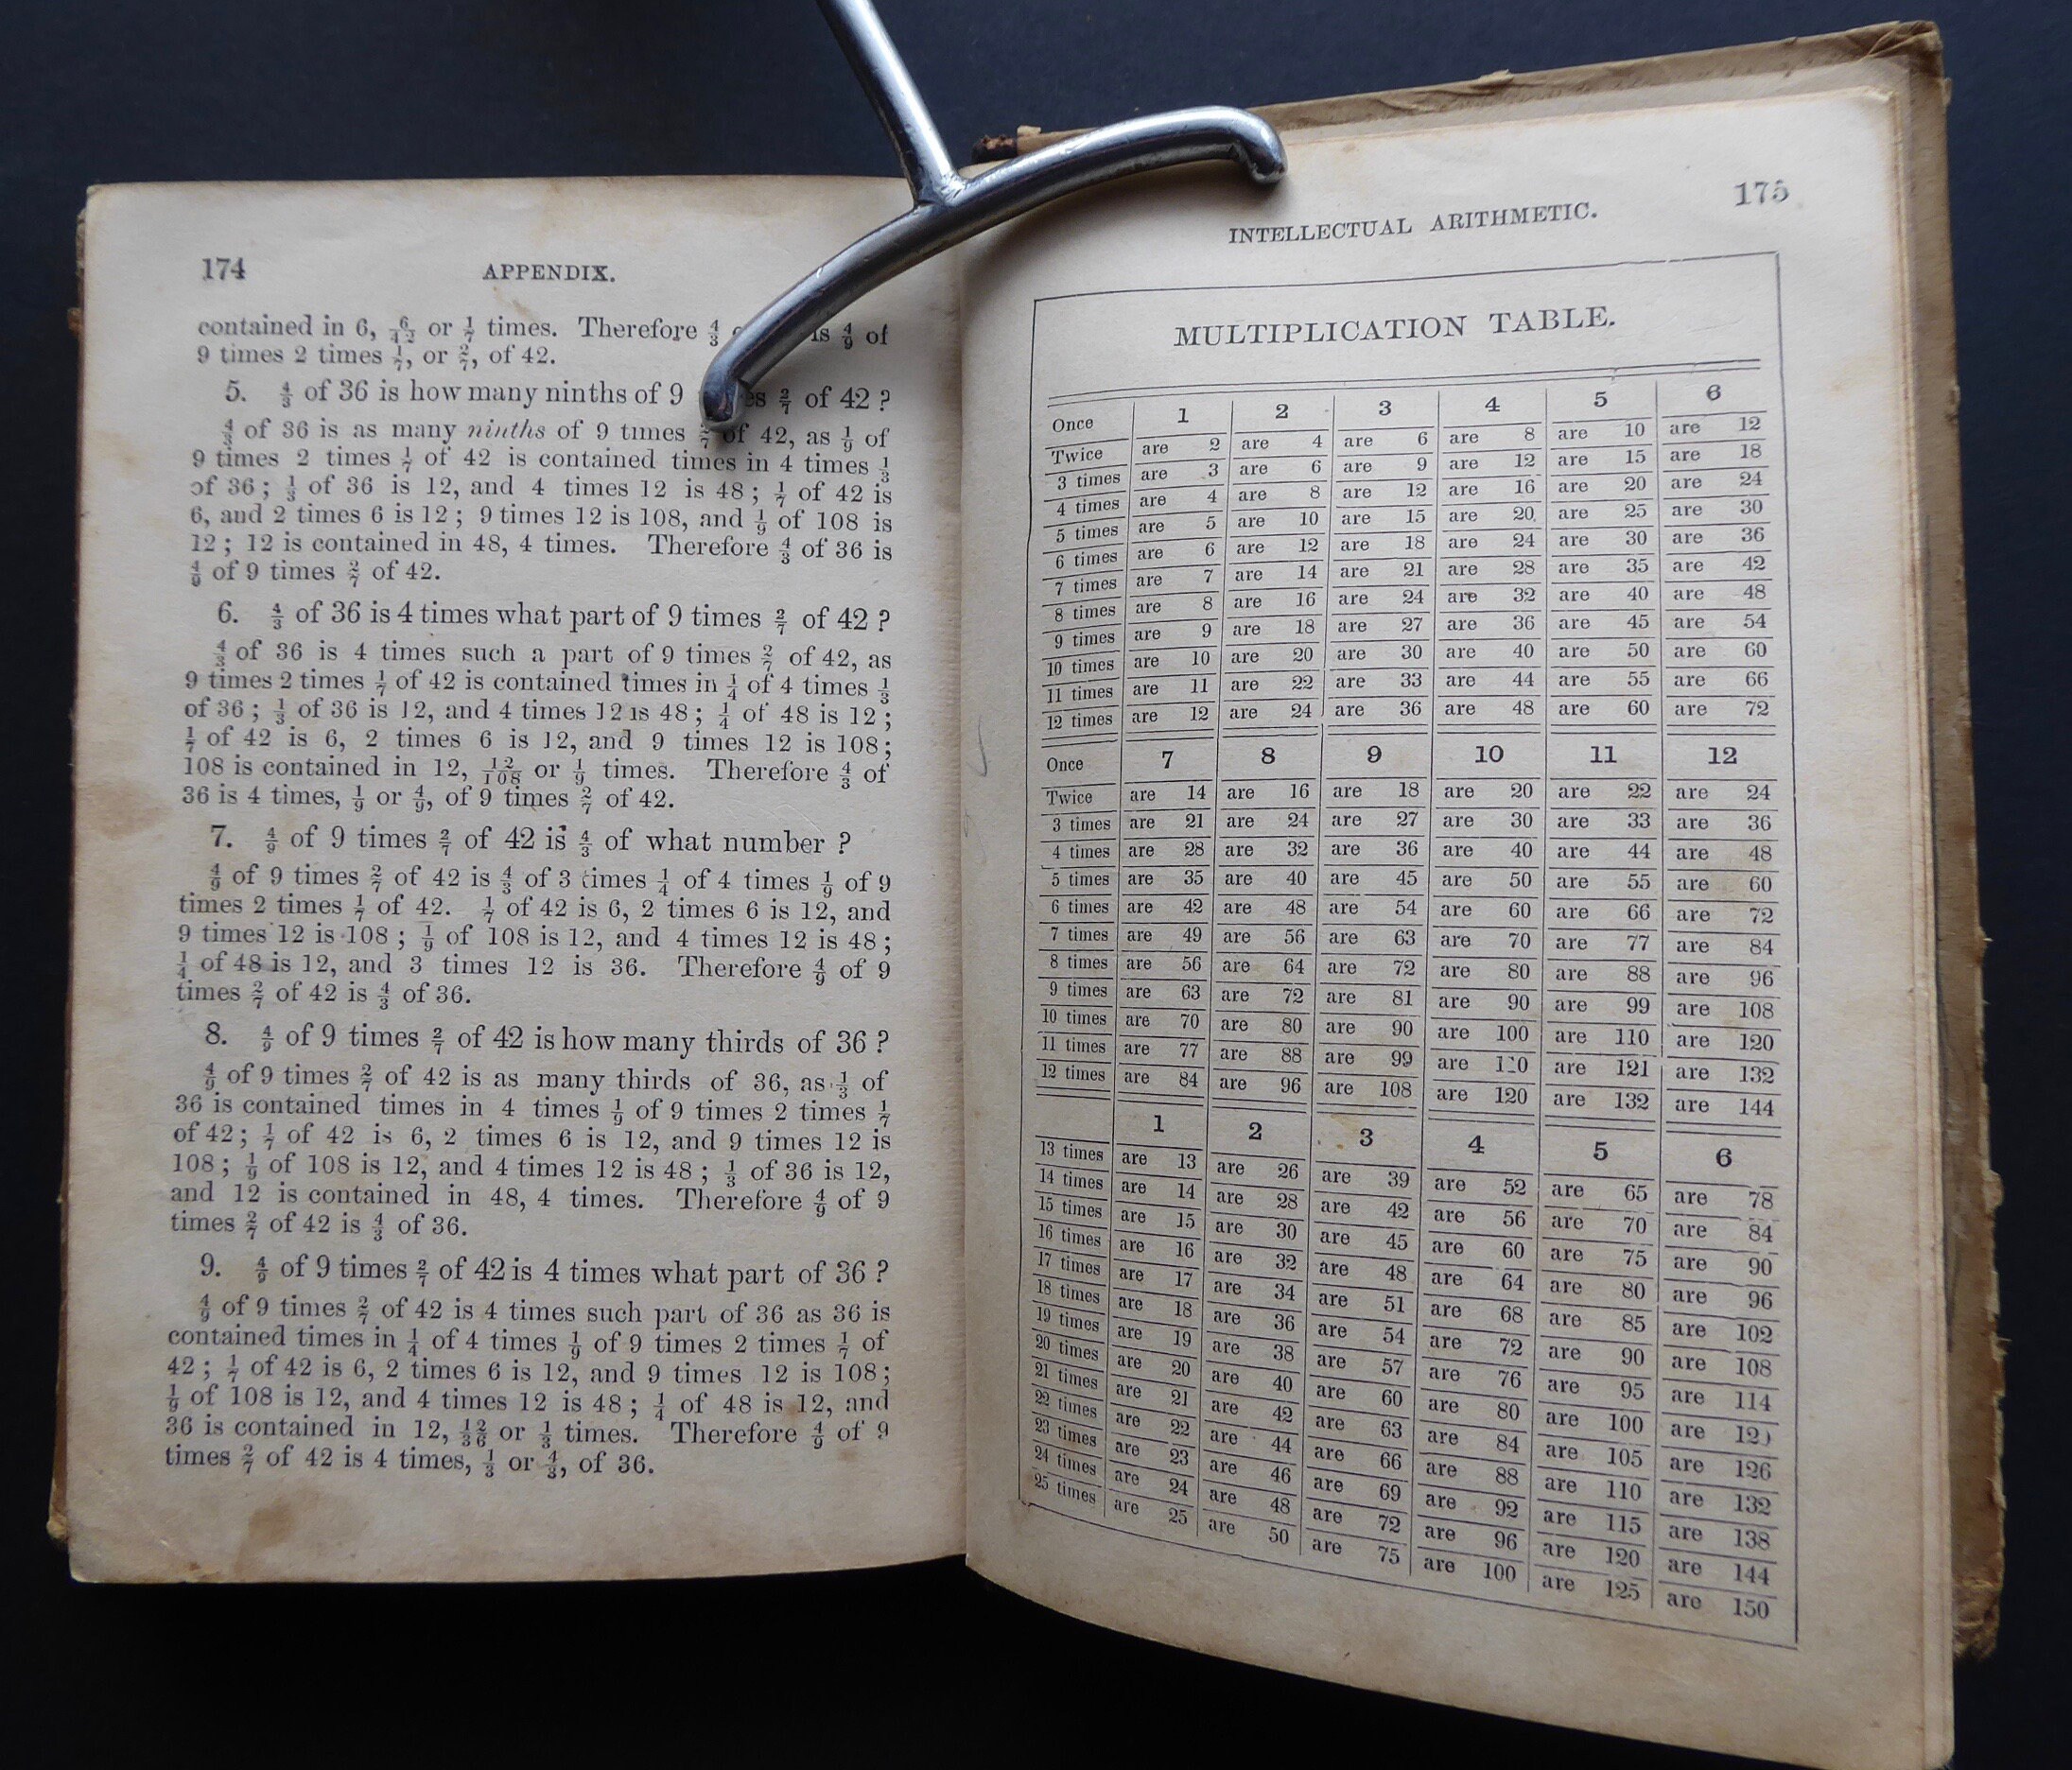 174 APPENDIX.
contained in 6, 6/42 or 1/7 times. Therefore 4/3 is 4/9 of
9 times 2 times 1/7, or 2/7, of 42.
5. 4/3 of 36 is how many ninths of 9 2/7 of 42 ?
4/3 of 36 is as many ninths of 9 times 2/7 of 42, as 1/9 of
9 times 2 times 1/7 of 42 is contained times in 4 times 1/3
of 36 ; 1/3 of 36 is 12, and 4 times 12 is 48 ; 1/7 of 42 is
6, and 2 times 6 is 12 ; 9 times 12 is 108, and 1/9 of 108 is
12 ; 12 is contained in 48, 4 times. Therefore 4/3 of 36 is
4/9 of 9 times 2/7 of 42.
6. 4/3 of 36 is 4 times what part of 9 times 2/7 of 42 ?
4/3 of 36 is 4 times such a part of 9 times 2/7 of 42, as
9 times 2 times 1/7 of 42 is contained times in 1/4 of 4 times 1/3
of 36 ; 1/3 of 36 is 12, and 4 times 12 is 48 ; 1/4 of 48 is 12 ;
1/7 of 42 is 6, 2 times 6 is 12, and 9 times 12 is 108 ;
108 is contained in 12, 12/108 or 1/9 times. Therefore 4/3 of
36 is 4 times, 1/9 or 4/9, of 9 times 2/7 of 42.
7. 4/9 of 9 times 2/7 of 42 is 4/3 of what number ?
4/9 of 9 times 2/7 of 42 is 4/3 of 3 times 1/4 of 4 times 1/9 of 9
times 2 times 1/7 of 42. 1/7 of 42 is 6, 2 times 6 is 12, and
9 times 12 is 108 ; 1/9 of 108 is 12, and 4 times 12 is 48 ;
1/4 of 48 is 12, and 3 times 12 is 36. Therefore 4/9 of 9
times 2/7 of 42 is 4/3 of 36.
8. 4/9 of 9 times 2/7 of 42 is how many thirds of 36 ?
4/9 of 9 times 2/7 of 42 is as many thirds of 36, as 1/3 of
36 is contained times in 4 times 1/9 of 9 times 2 times 1/7
of 42 ; 1/7 of 42 is 6, 2 times 6 is 12, and 9 times 12 is
108 ; 1/9 of 108 is 12, and 4 times 12 is 48 ; 1/3 of 36 is 12,
and 12 is contained in 48, 4 times. Therefore 4/9 of 9
times 2/7 of 42 is 4/3 of 36.
9. 4/9 of 9 times 2/7 of 42 is 4 times what part of 36 ?
4/9 of 9 times 2/7 of 42 is 4 times such part of 36 as 36 is
contained times in 1/4 of 4 times 1/9 of 9 times 2 times 1/7 of
42 ; 1/7 of 42 is 6, 2 times 6 is 12, and 9 times 12 is 108 ;
1/9 of 108 is 12, and 4 times 12 is 48 ; 1/4 of 48 is 12, and
36 is contained in 12, 12/36 or 1/3 times. Therefore 4/9 of 9
times 2/7 of 42 is 4 times, 1/3 or 4/3, of 36.
INTELLECTUAL ARITHMETIC. 175
MULTIPLICATION TABLE.
Once 1 2 3 4 5 6
Twice are 2 are 4 are 6 are 8 are 10 are 12
3 times are 3 are 6 are 9 are 12 are 15 are 18
4 times are 4 are 8 are 12 are 16 are 20 are 24
5 times are 5 are 10 are 15 are 20 are 25 are 30
6 times are 6 are 12 are 18 are 24 are 30 are 36
7 times are 7 are 14 are 21 are 28 are 35 are 42
8 times are 8 are 16 are 24 are 32 are 40 are 48
9 times are 9 are 18 are 27 are 36 are 45 are 54
10 times are 10 are 20 are 30 are 40 are 50 are 60
11 times are 11 are 22 are 33 are 44 are 55 are 66
12 times are 12 are 24 are 36 are 48 are 60 are 72
Once 7 8 9 10 11 12
Twice are 14 are 16 are 18 are 20 are 22 are 24
3 times are 21 are 24 are 27 are 30 are 33 are 36
4 times are 28 are 32 are 36 are 40 are 44 are 48
5 times are 35 are 40 are 45 are 50 are 55 are 60
6 times are 42 are 48 are 54 are 60 are 66 are 72
7 times are 49 are 56 are 63 are 70 are 77 are 84
8 times are 56 are 64 are 72 are 80 are 88 are 96
9 times are 63 are 72 are 81 are 90 are 99 are 108
10 times are 70 are 80 are 90 are 100 are 110 are 120
11 times are 77 are 88 are 99 are 110 are 121 are 132
12 times are 84 are 96 are 108 are 120 are 132 are 144
1 2 3 4 5 6
13 times are 13 are 26 are 39 are 52 are 65 are 78
14 times are 14 are 28 are 42 are 56 are 70 are 84
15 times are 15 are 30 are 45 are 60 are 75 are 90
16 times are 16 are 32 are 48 are 64 are 80 are 96
17 times are 17 are 34 are 51 are 68 are 85 are 102
18 times are 18 are 36 are 54 are 72 are 90 are 108
19 times are 19 are 38 are 57 are 76 are 95 are 114
20 times are 20 are 40 are 60 are 80 are 100 are 120
21 times are 21 are 42 are 63 are 84 are 105 are 126
22 times are 22 are 44 are 66 are 88 are 110 are 132
23 times are 23 are 46 are 69 are 92 are 115 are 138
24 times are 24 are 48 are 72 are 96 are 120 are 144
25 times are 25 are 50 are 75 are 100 are 125 are 150